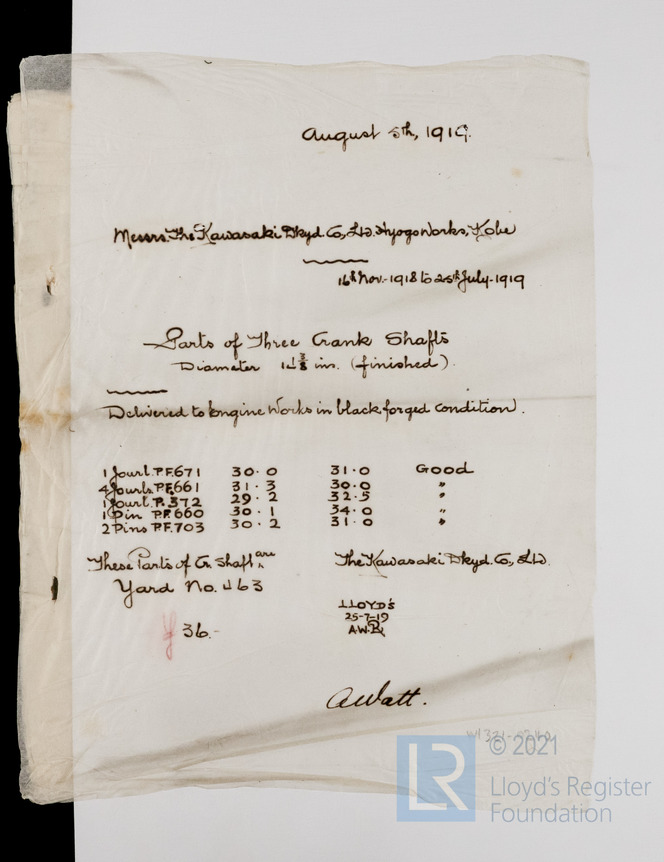 August 5th, 1919.
Messrs. The Kawasaki Dkyd. Co., Ltd. Hyogo Works, Kobe
16th Nov.-1918 to 25th July-1919
Parts of Three Crank Shafts
Diameter 14 3/8 ins. (finished).
Delivered to Engine Works in black forged condition.
1 Jourl. P.F. 671 30.0 31.0 Good
4 Jourls. P.F. 661 31.3 30.0 "
1 Jourl. P. 372 29.2 32.5 "
1 Pin P.F. 660 30.1 34.0 "
2 Pins P.F. 703 30.2 31.0 "
These Parts of Cr. Shaft are The Kawasaki Dkyd. Co., Ltd.
Yard No. 463
LLOYD'S
25-7-19
36.- A.W.
A Watt.
© 2021
LR Lloyd's Register
Foundation